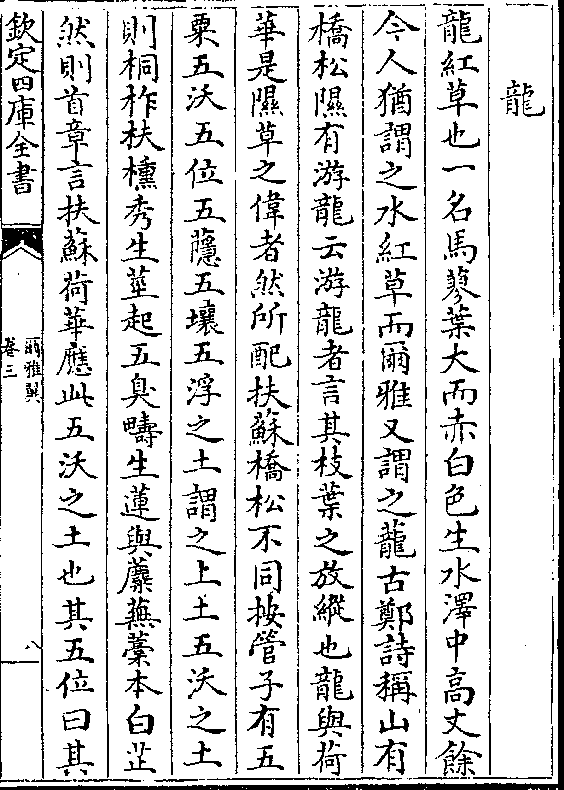 龍
龍紅草也一名馬蓼葉大而赤白色生水澤中高丈餘
今人猶謂之水紅草而爾雅又謂之蘢古鄭詩稱山有
橋松隰有游龍云游龍者言其枝葉之放縱也龍與荷
華是隰草之偉者然所配扶蘇橋松不同按管子有五
粟五沃五位五蘟五壤五浮之土謂之上土五沃之土
則桐柞扶櫄秀生莖起五臭疇生蓮與蘪蕪藁本白芷
然則首章言扶蘇荷華應此五沃之土也其五位曰其
欽定四庫全書
爾雅翼
卷三
八